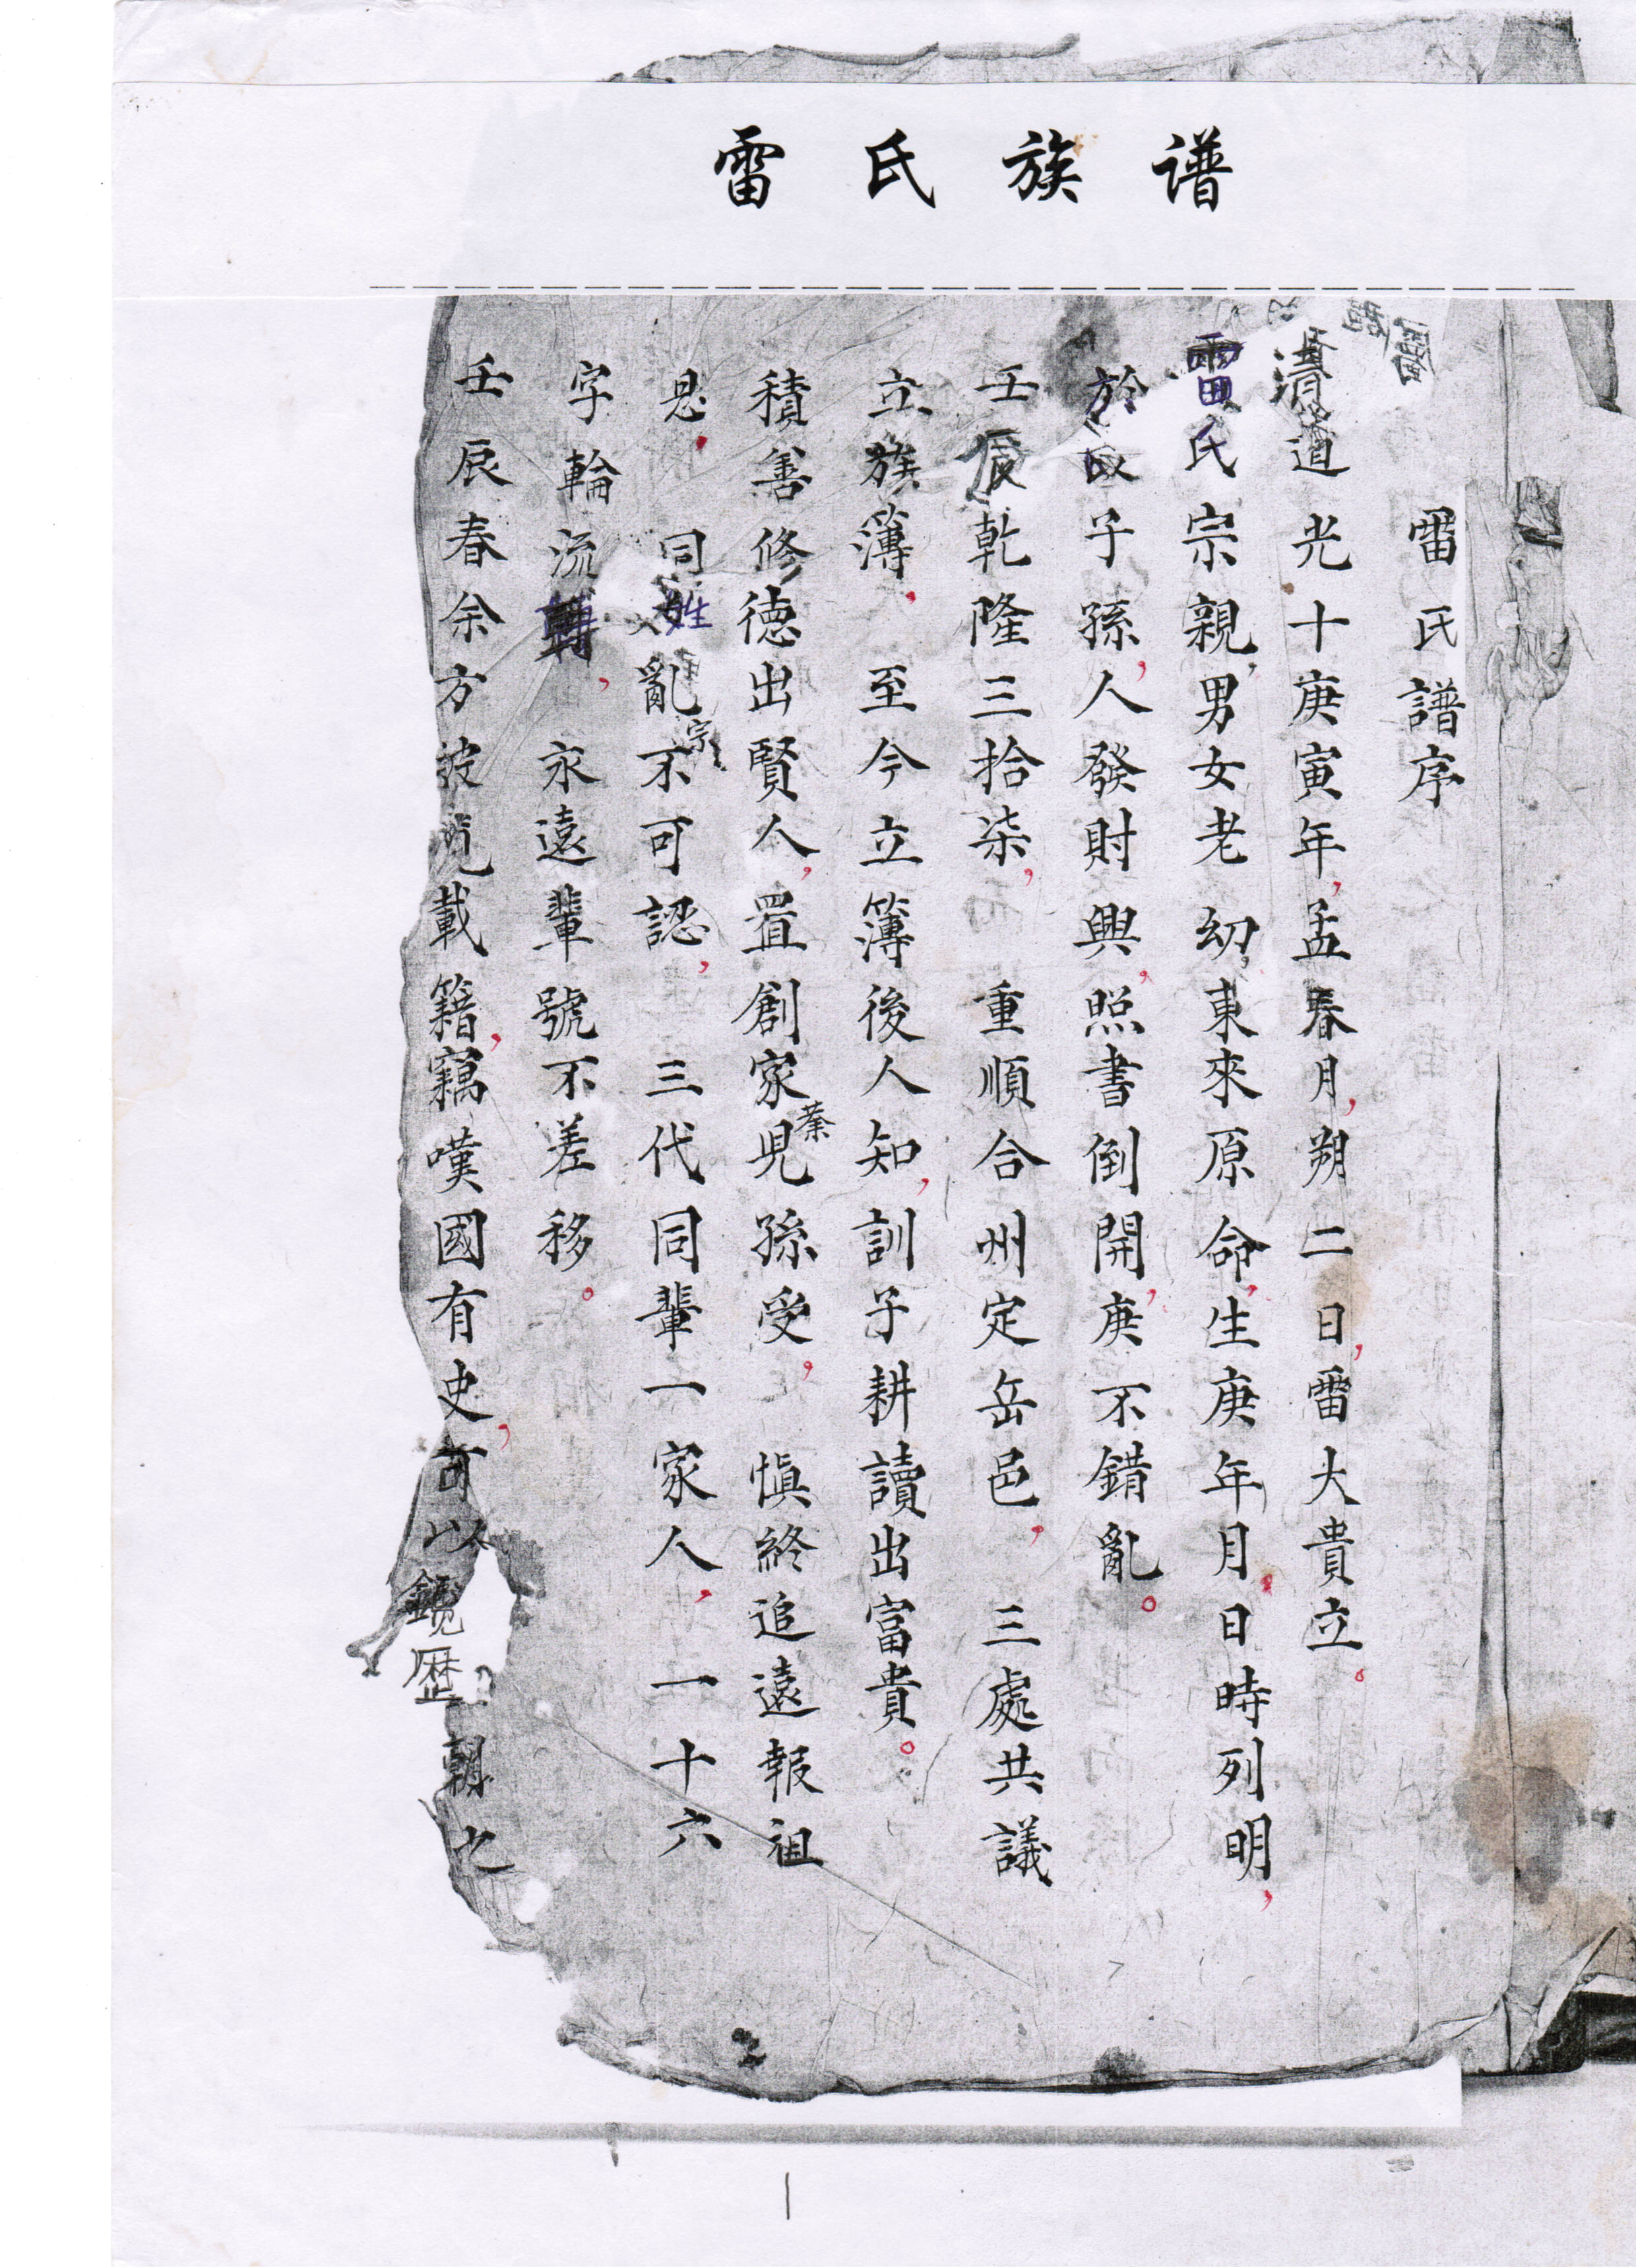 雷氏族谱
雷氏譜序
清道光十庚寅年,孟春月,朔二日,雷大貴立。
雷氏宗親,男女老幼,東來原命,生庚年月日時列明,
於後子孫,人發財興,照書倒開,庚不錯亂。
壬辰乾隆三拾柒,重順合州定岳邑,三處共議
立族簿,至今立簿後人知,訓子耕讀出富貴。
積善修德出賢人,置創家兒孫受,慎終追遠報祖
業
恩,同姓亂不可認,三代同輩一家人,一十六
宗
字輪流轉,永遠輩號不差移。
壬辰春余方披覽載籍,竊嘆國有史,可以鏡歷朝之
1